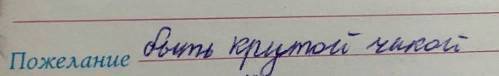 Пожелание быть крутой чикой